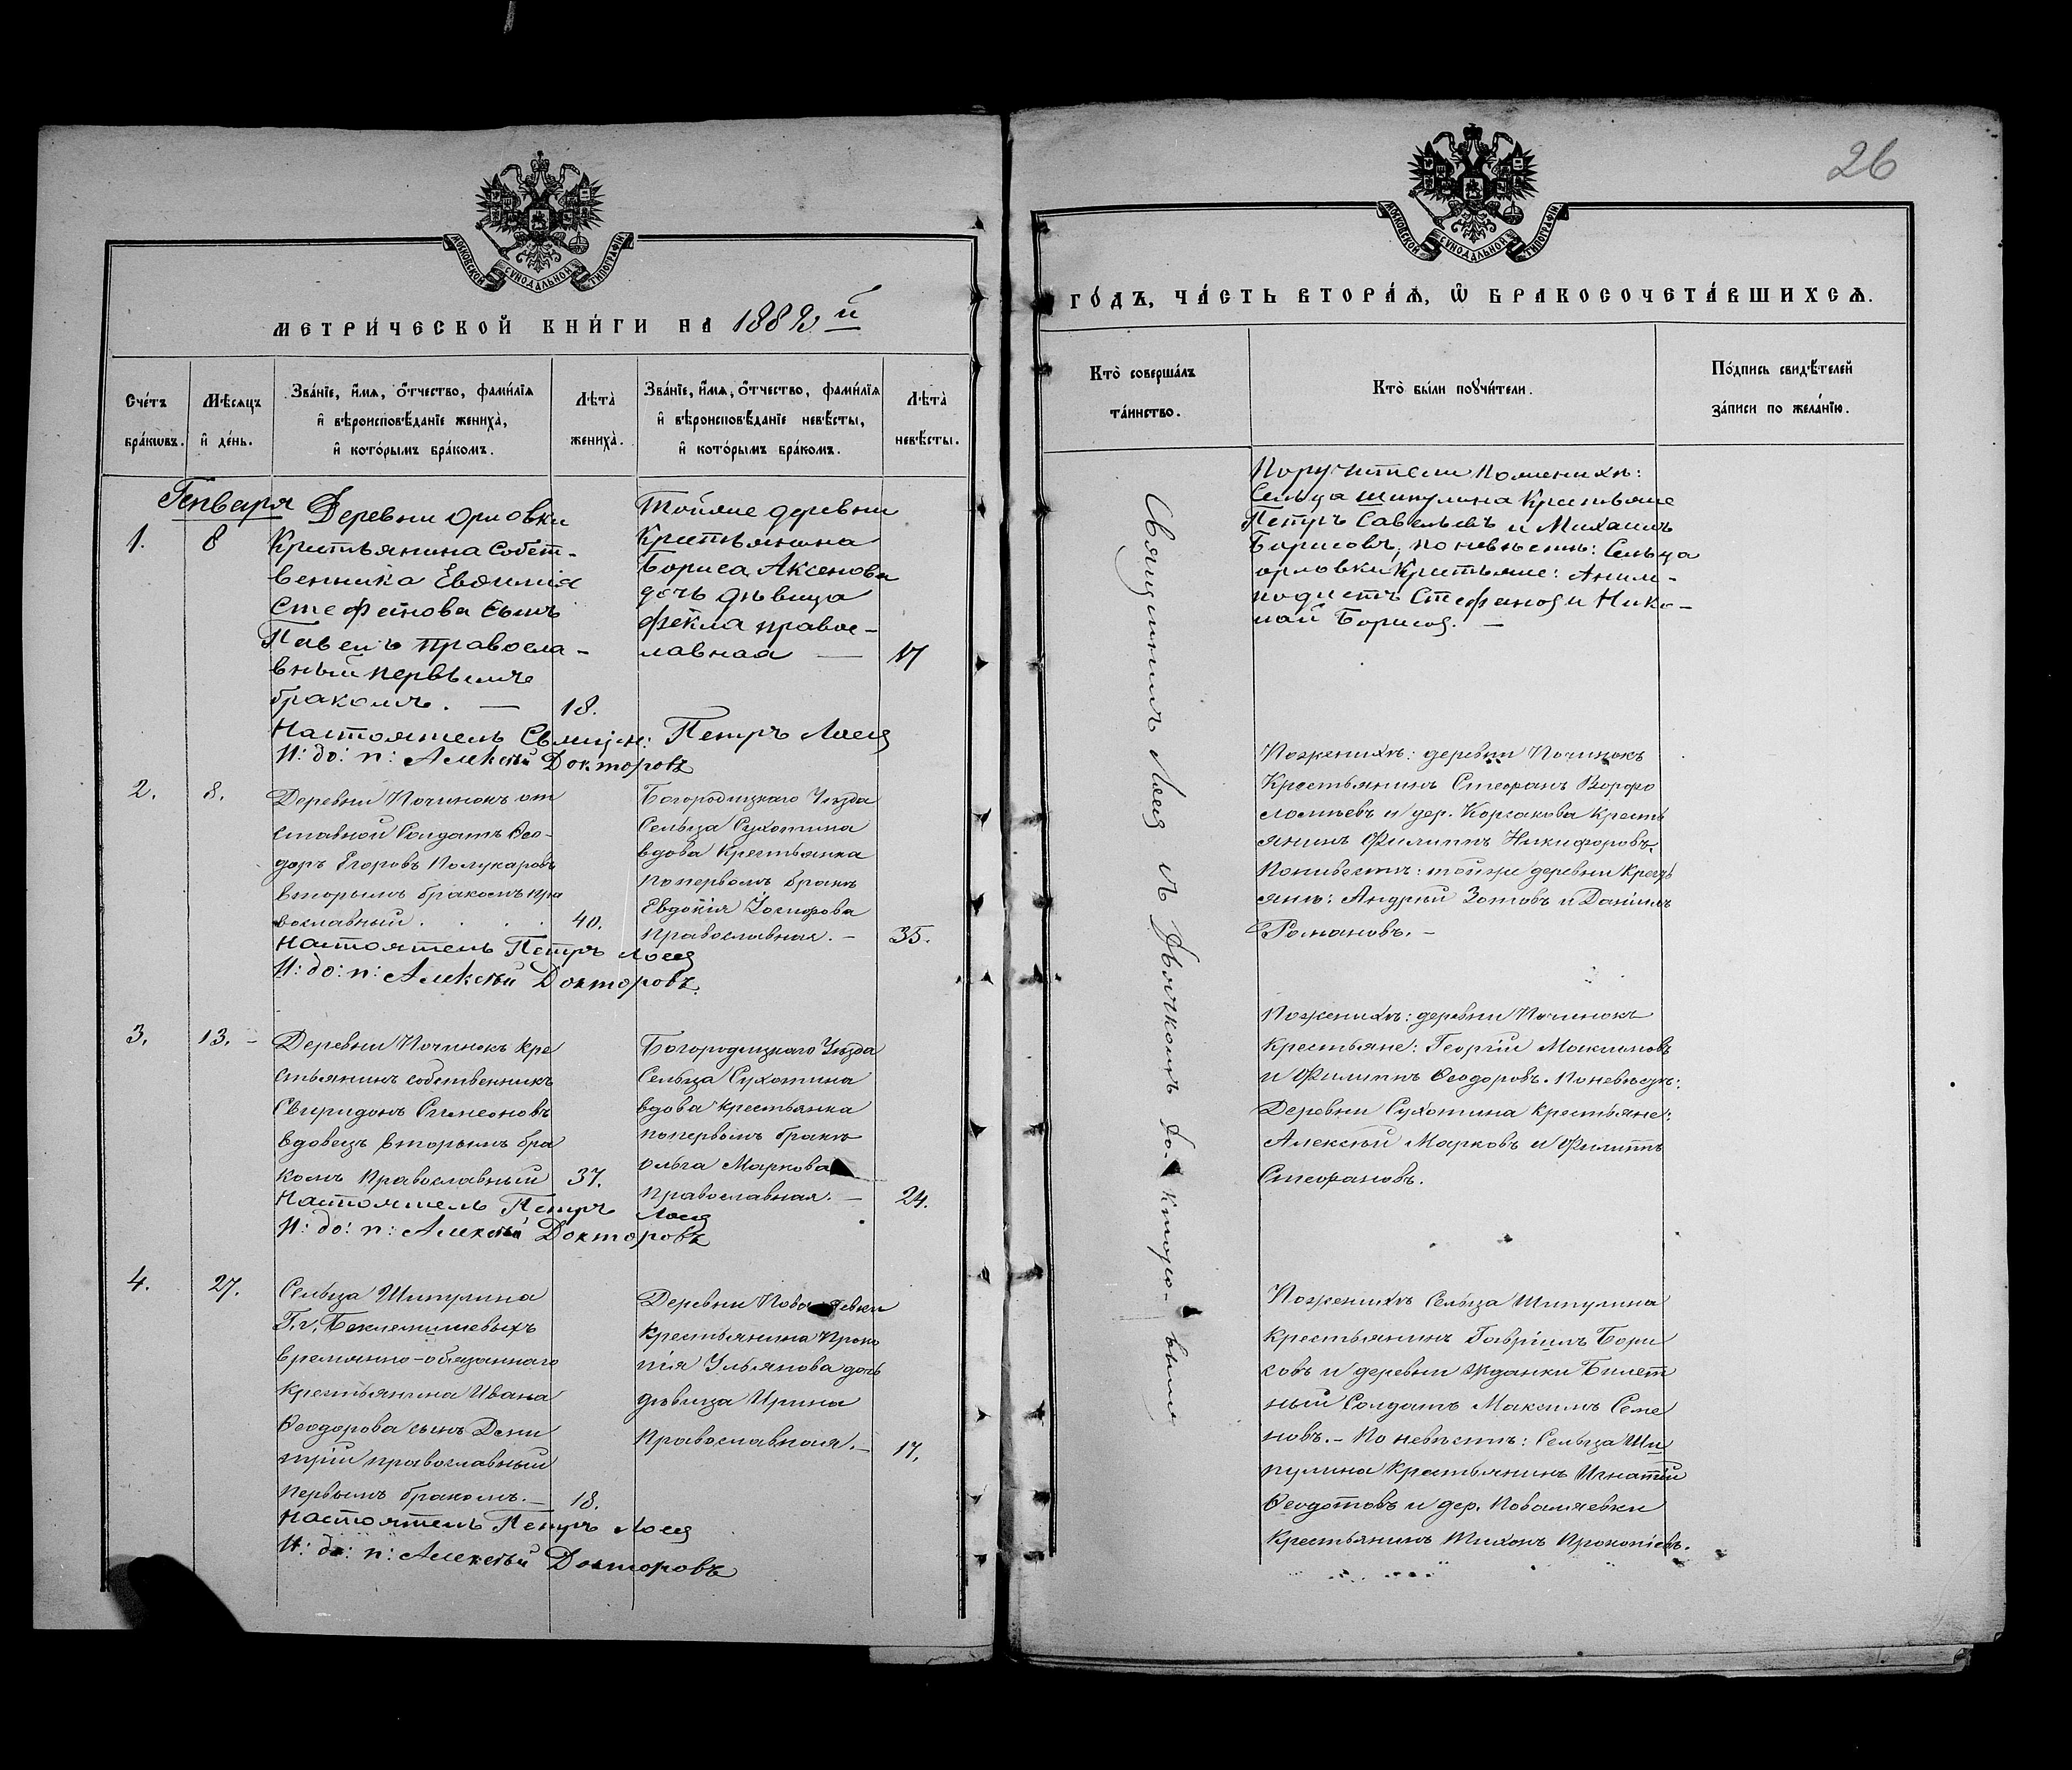 МОСКОВСКОЙ СѴНОДАЛЬНОЙ ТИПОГРАФІИ
МЕТРИ́ЧЕСКОЙ КНИ́ГИ НА 1882й
Сче́тъ бра́кѡвъ.
Мѣ́сяцъ и҆ де́нь.
Зва́нїе, и҆́мѧ, ѻ҆́тчество, фами́лїѧ
и҆ вѣроисповѣ́данїе жениха̀,
и҆ кото́рымъ бра́комъ.
Лѣ́та̀ жениха̀.
Зва́нїе, и҆́мѧ, ѻ҆́тчество, фами́лїѧ
и҆ вѣроисповѣ́данїе невѣ́сты,
и҆ кото́рымъ бра́комъ.
Лѣ́та̀ невѣ́сты.
Генваря
1.
8
Деревни Орловки
Крестьянина Собст-
венника Евѳимія
Стефанова сынъ
Павелъ Правосла-
вный первымъ
бракомъ. —
18.
Тойже деревни
Крестьянина
Бориса Аксенова
дочь дѣвица
Фекла правос-
лавная —
17
Настоятель Священ: Петръ Лоев
И: до: п: Алексѣй Докторовъ
2.
8.
Деревни Починокъ от
ставной Солдатъ Ѳео-
доръ Егоровъ Полукаровъ
вторымъ бракомъ пра
вославный . . . .
40.
Богородицкаго Уѣзда
Сельца Сухотина
вдова Крестьянка
поперволъ бракѣ
Евдокія Іосифова
Православная. —
35.
Настоятель Петръ Лоев
И: до: п: Алексѣй Докторовъ.
3.
13. –
Деревни Починокъ Кре
стьянинъ собственникъ
Свиридонъ Симеоновъ
вдовецъ вторымъ бра
комъ Православный
37.
Богородицкаго Уѣзда
Сельца Сухотина
вдова Крестьянка
поперволъ бракѣ
Ольга Маркова
Православная. —
24.
Настоятель Петръ Лоев
И: до: п: Алексѣй Докторовъ
4.
27.
Сельца Шипулина
Г.г. Беклемишевыхъ
временно-обязаннаго
Крестьянина Ивана
Ѳеодорова сынъ Дими
трій православный
первымъ бракомъ. —
18.
Деревни
Крестьянина Проко
пія Ульянова дочь
дѣвица Ирина
Православная. —
17.
Настоятель Петръ Лоев
И: до: п: Алексѣй Докторовъ
26
МОСКОВСКОЙ СѴНОДАЛЬНОЙ ТИПОГРАФІИ
ГО́ДЪ, ЧА́СТЬ ВТОРА́Ѧ, Ѽ БРАКОСОЧЕТА́ВШИХСѦ.
Кто̀ соверша́лъ
та́инство.
Кто̀ бы́ли поꙋчи́тели.
По́дпись свидѣ́телей
за́писи по жела́нїю.
Священникъ Лоев съ Дьячкомъ Докторовымъ
Поручители По женихѣ:
Сельца Шипулина Крестьяне
Петръ Савельевъ и Михаилъ
Борисовъ, по невѣстѣ: Сельца
Орловки Крестьяне: Аним-
подистъ Стефанов и Нико-
лай Борисов. —
Поженихѣ: деревни Починокъ
Крестьянинъ Стефанъ Ворфо
ломѣевъ и дер. Корсакова Кресть
янинъ Филиппъ Никифоровъ.
Поневѣстѣ: тойже деревни Крест
яне: Андрей Зотовъ и Даніилъ
Романовъ. —
Поженихѣ: деревни Починокъ
Крестьяне: Георгій Максимовъ
и Филиппъ Ѳеодоровъ. Поневѣстѣ:
Деревни Сухотина Крестьяне:
Алексѣй Марковъ и Филиппъ
Стефановъ.
Поженихѣ Сельца Шипулина
Крестьянинъ Гавріилъ Бори
совъ и деревни Жданки Билет
ный Солдатъ Максимъ Семе
новъ. — По невѣстѣ: Сельца Ши
пулина Крестьянинъ Игнатій
Ѳеодотовъ и дер. Поваляевки
Крестьянинъ Тихонъ Прокопіевъ.